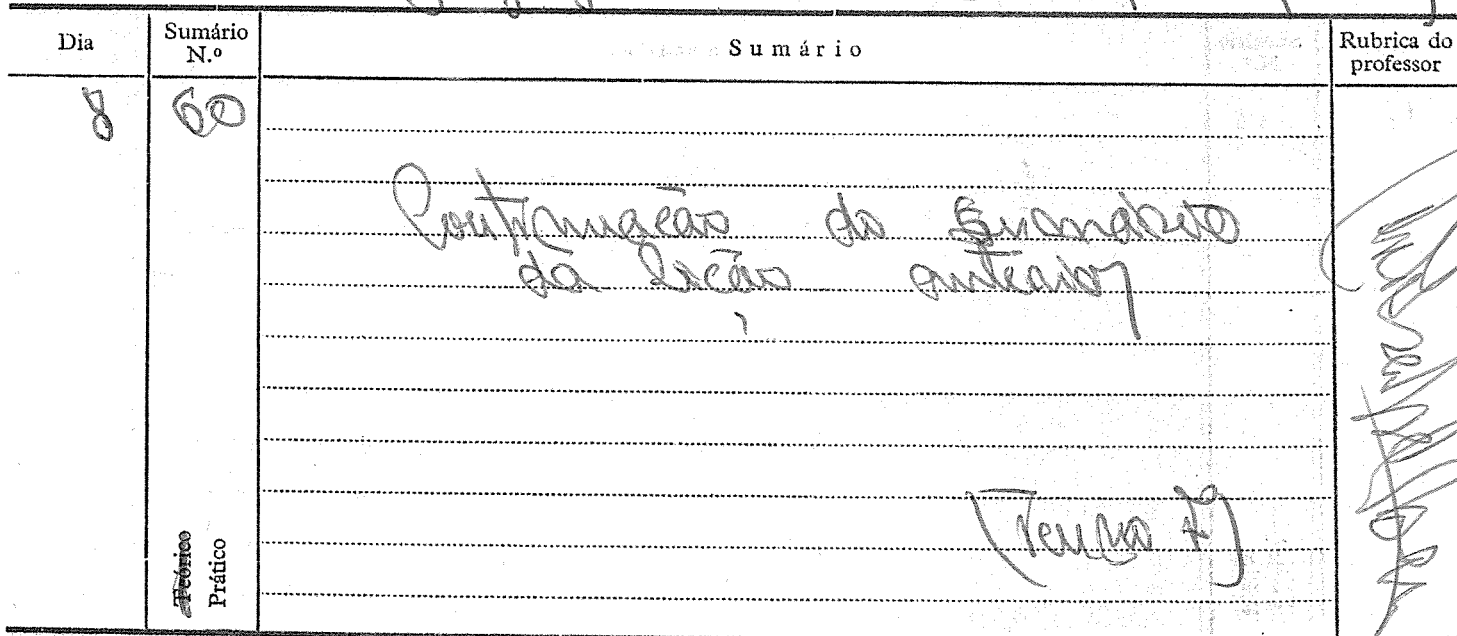 Dia
Sumário
N.º
Sumário
Rubrica do
professor
8
60
Continuação do Sumário
da lição anterior
(Turma
Teórico
Prático